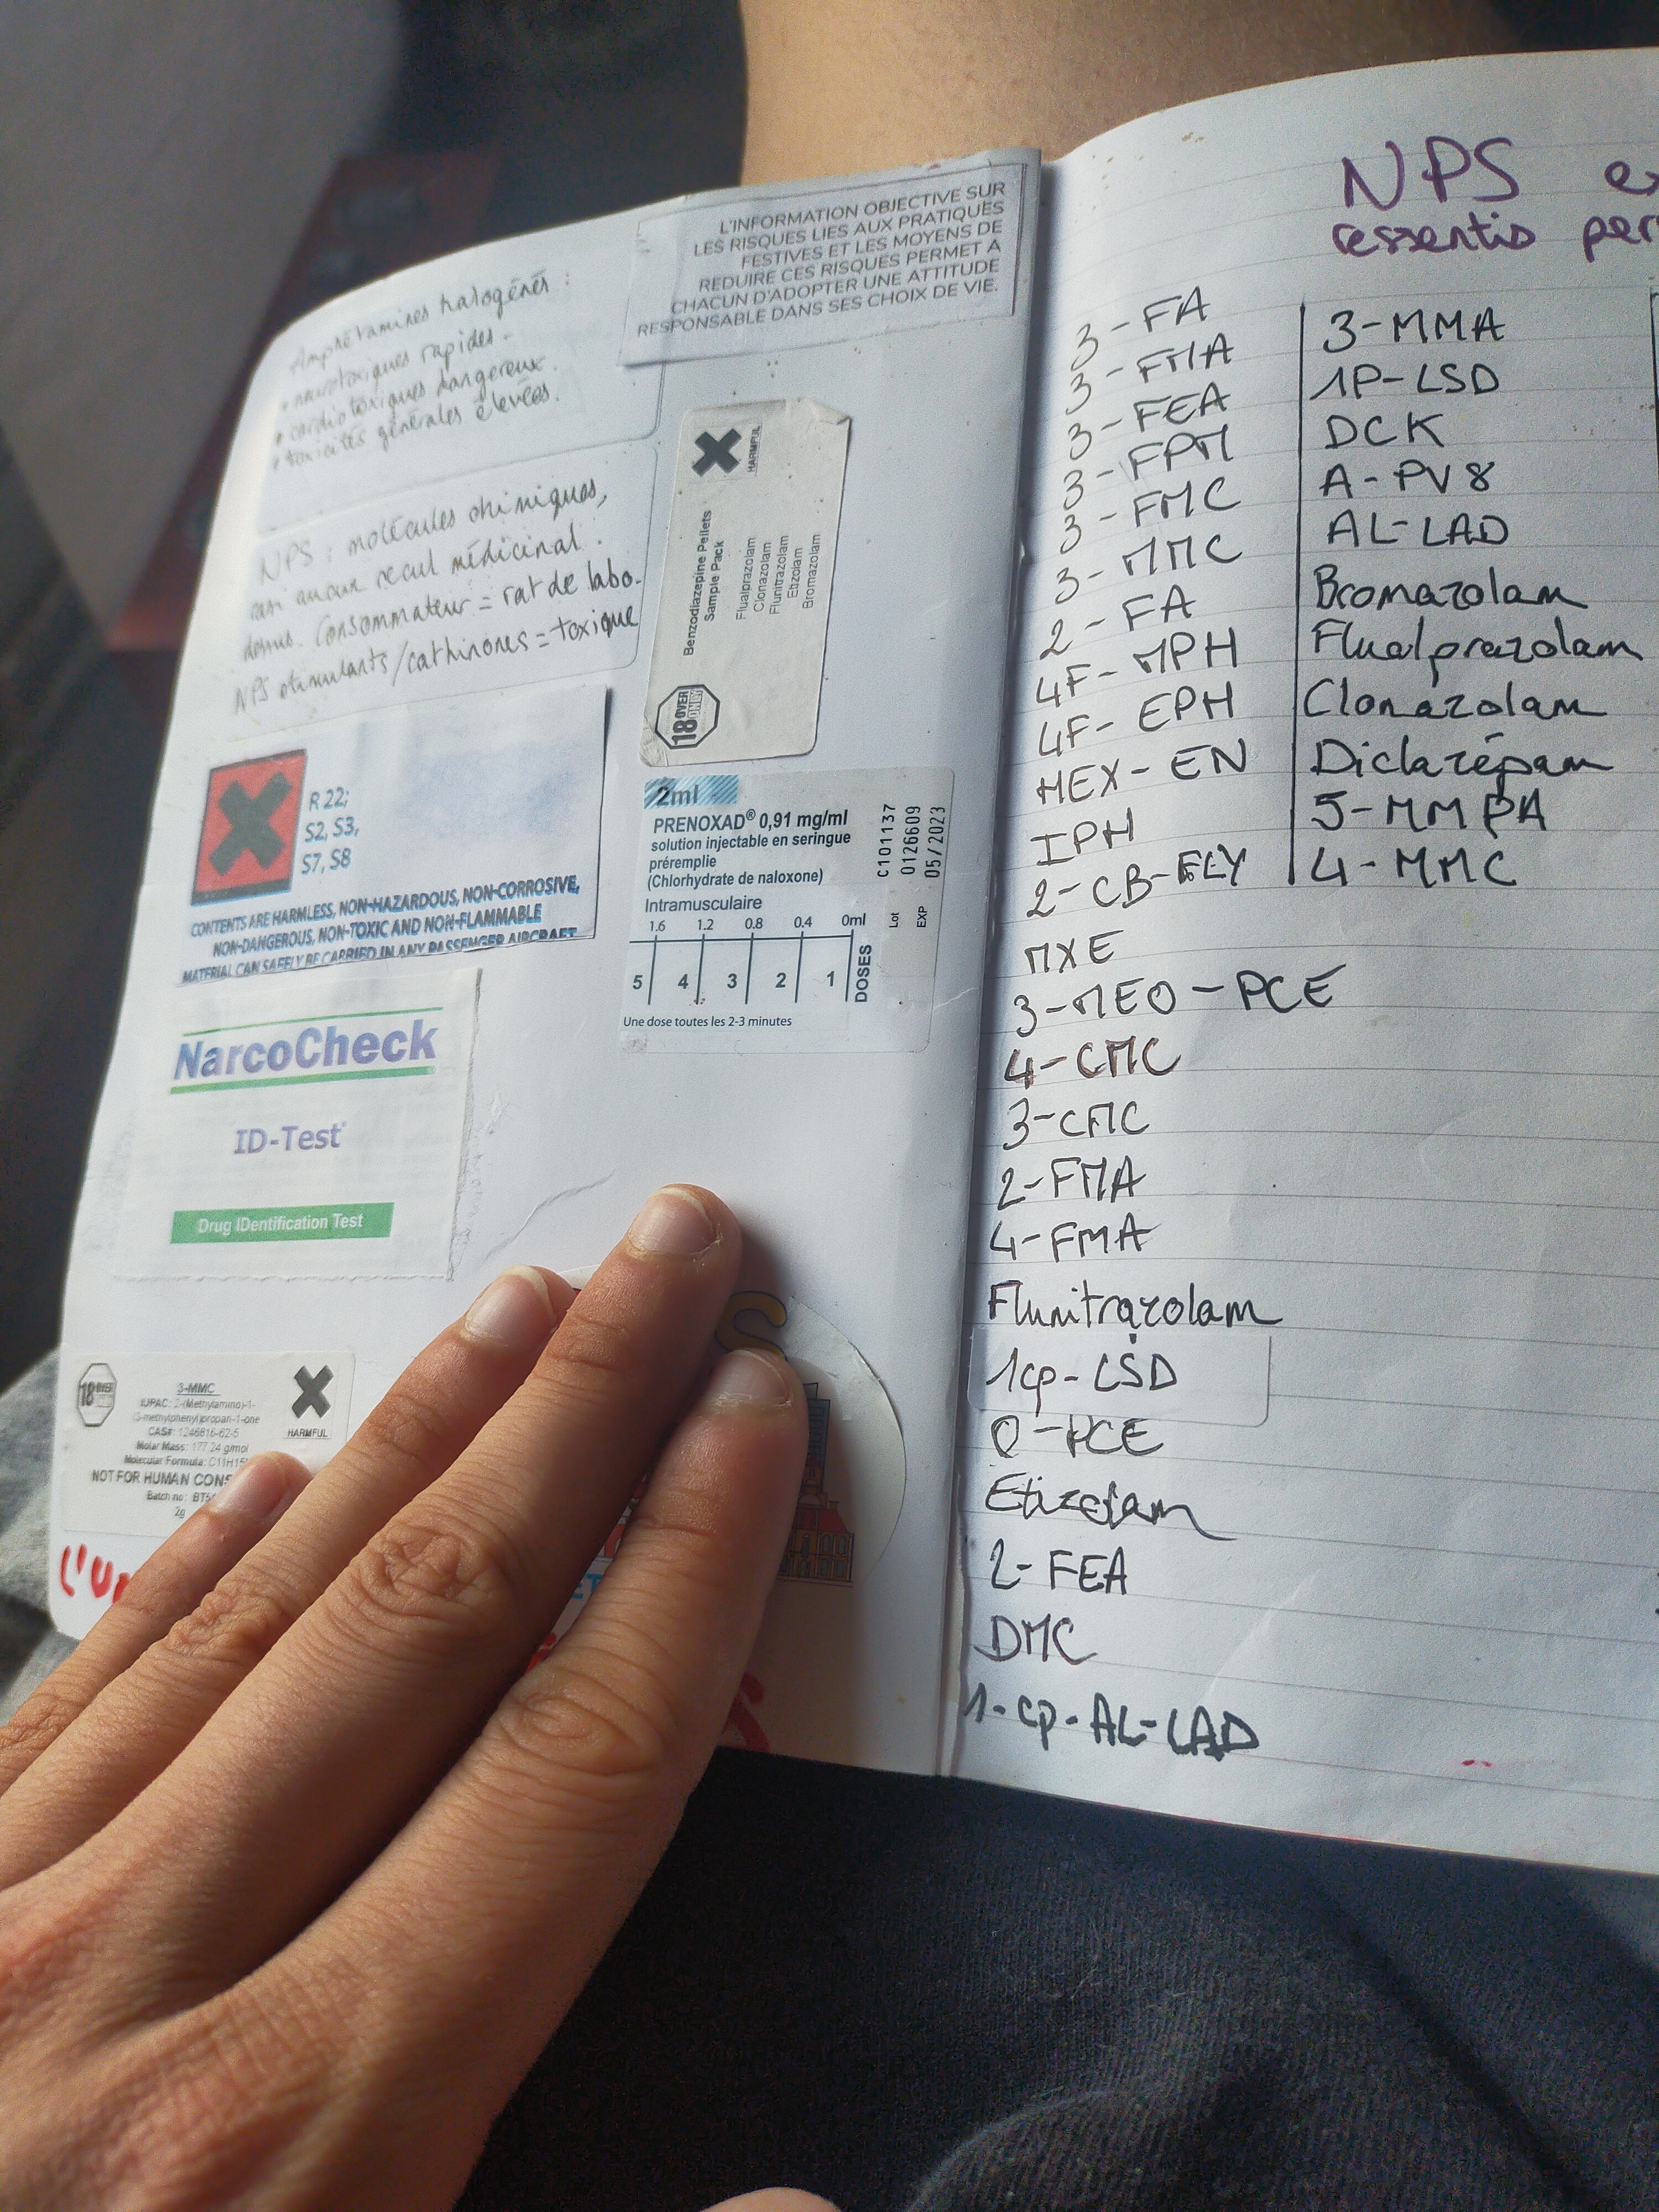 L'INFORMATION OBJECTIVE SUR
LES RISQUES LIES AUX PRATIQUES
FESTIVES ET LES MOYENS DE
REDUIRE CES RISQUES PERMET A
CHACUN D'ADOPTER UNE ATTITUDE
RESPONSABLE DANS SES CHOIX DE VIE.
Amphétamines halogénés :
• neurotoxiques rapides.
• cardiotoxiques dangereux.
• toxicités générales élevées.
NPS : molécules chimiques,
aucun recul médicinal
dessus. Consommateur = rat de labo.
NPS stimulants/cathinones = toxique
HARMFUL
Benzodiazepine Pellets
Sample Pack
Flualprazolam
Clonazolam
Flunitrazolam
Etizolam
Bromazolam
18 OVER ONLY
R 22;
S2, S3,
S7, S8
CONTENTS ARE HARMLESS, NON-HAZARDOUS, NON-CORROSIVE,
NON-DANGEROUS, NON-TOXIC AND NON-FLAMMABLE
MATERIAL CAN SAFELY BE CARRIED IN ANY PASSENGER AIRCRAFT
2ml
PRENOXAD® 0,91 mg/ml
solution injectable en seringue
préremplie
(Chlorhydrate de naloxone)
Intramusculaire
1.6 1.2 0.8 0.4 0ml
5 4 3 2 1 DOSES
Une dose toutes les 2-3 minutes
C101137
Lot 0126609
EXP 05/2023
NarcoCheck
ID-Test
Drug IDentification Test
18 OVER
3-MMC
IUPAC: 2-(Methylamino)-1-
(3-methylphenyl)propan-1-one
CAS#: 1246816-62-5
Molar Mass: 177.24 g/mol
Molecular Formula: C11H15
NOT FOR HUMAN CONS
Batch no: BT5
2g
HARMFUL
L'U
S
ET
NPS
ressentis per
3-FA
3-FMA
3-FEA
3-FPM
3-FMC
3-MMC
2-FA
4F-MPH
4F-EPH
HEX-EN
IPH
2-CB-FLY
MXE
3-MEO-PCE
4-CMC
3-CMC
2-FMA
4-FMA
Flunitrazolam
1cp-LSD
O-PCE
Etizolam
2-FEA
DMC
1-cp-AL-LAD
3-MMA
1P-LSD
DCK
A-PV8
AL-LAD
Bromazolam
Flualprazolam
Clonazolam
Diclazépam
5-MMPA
4-MMC